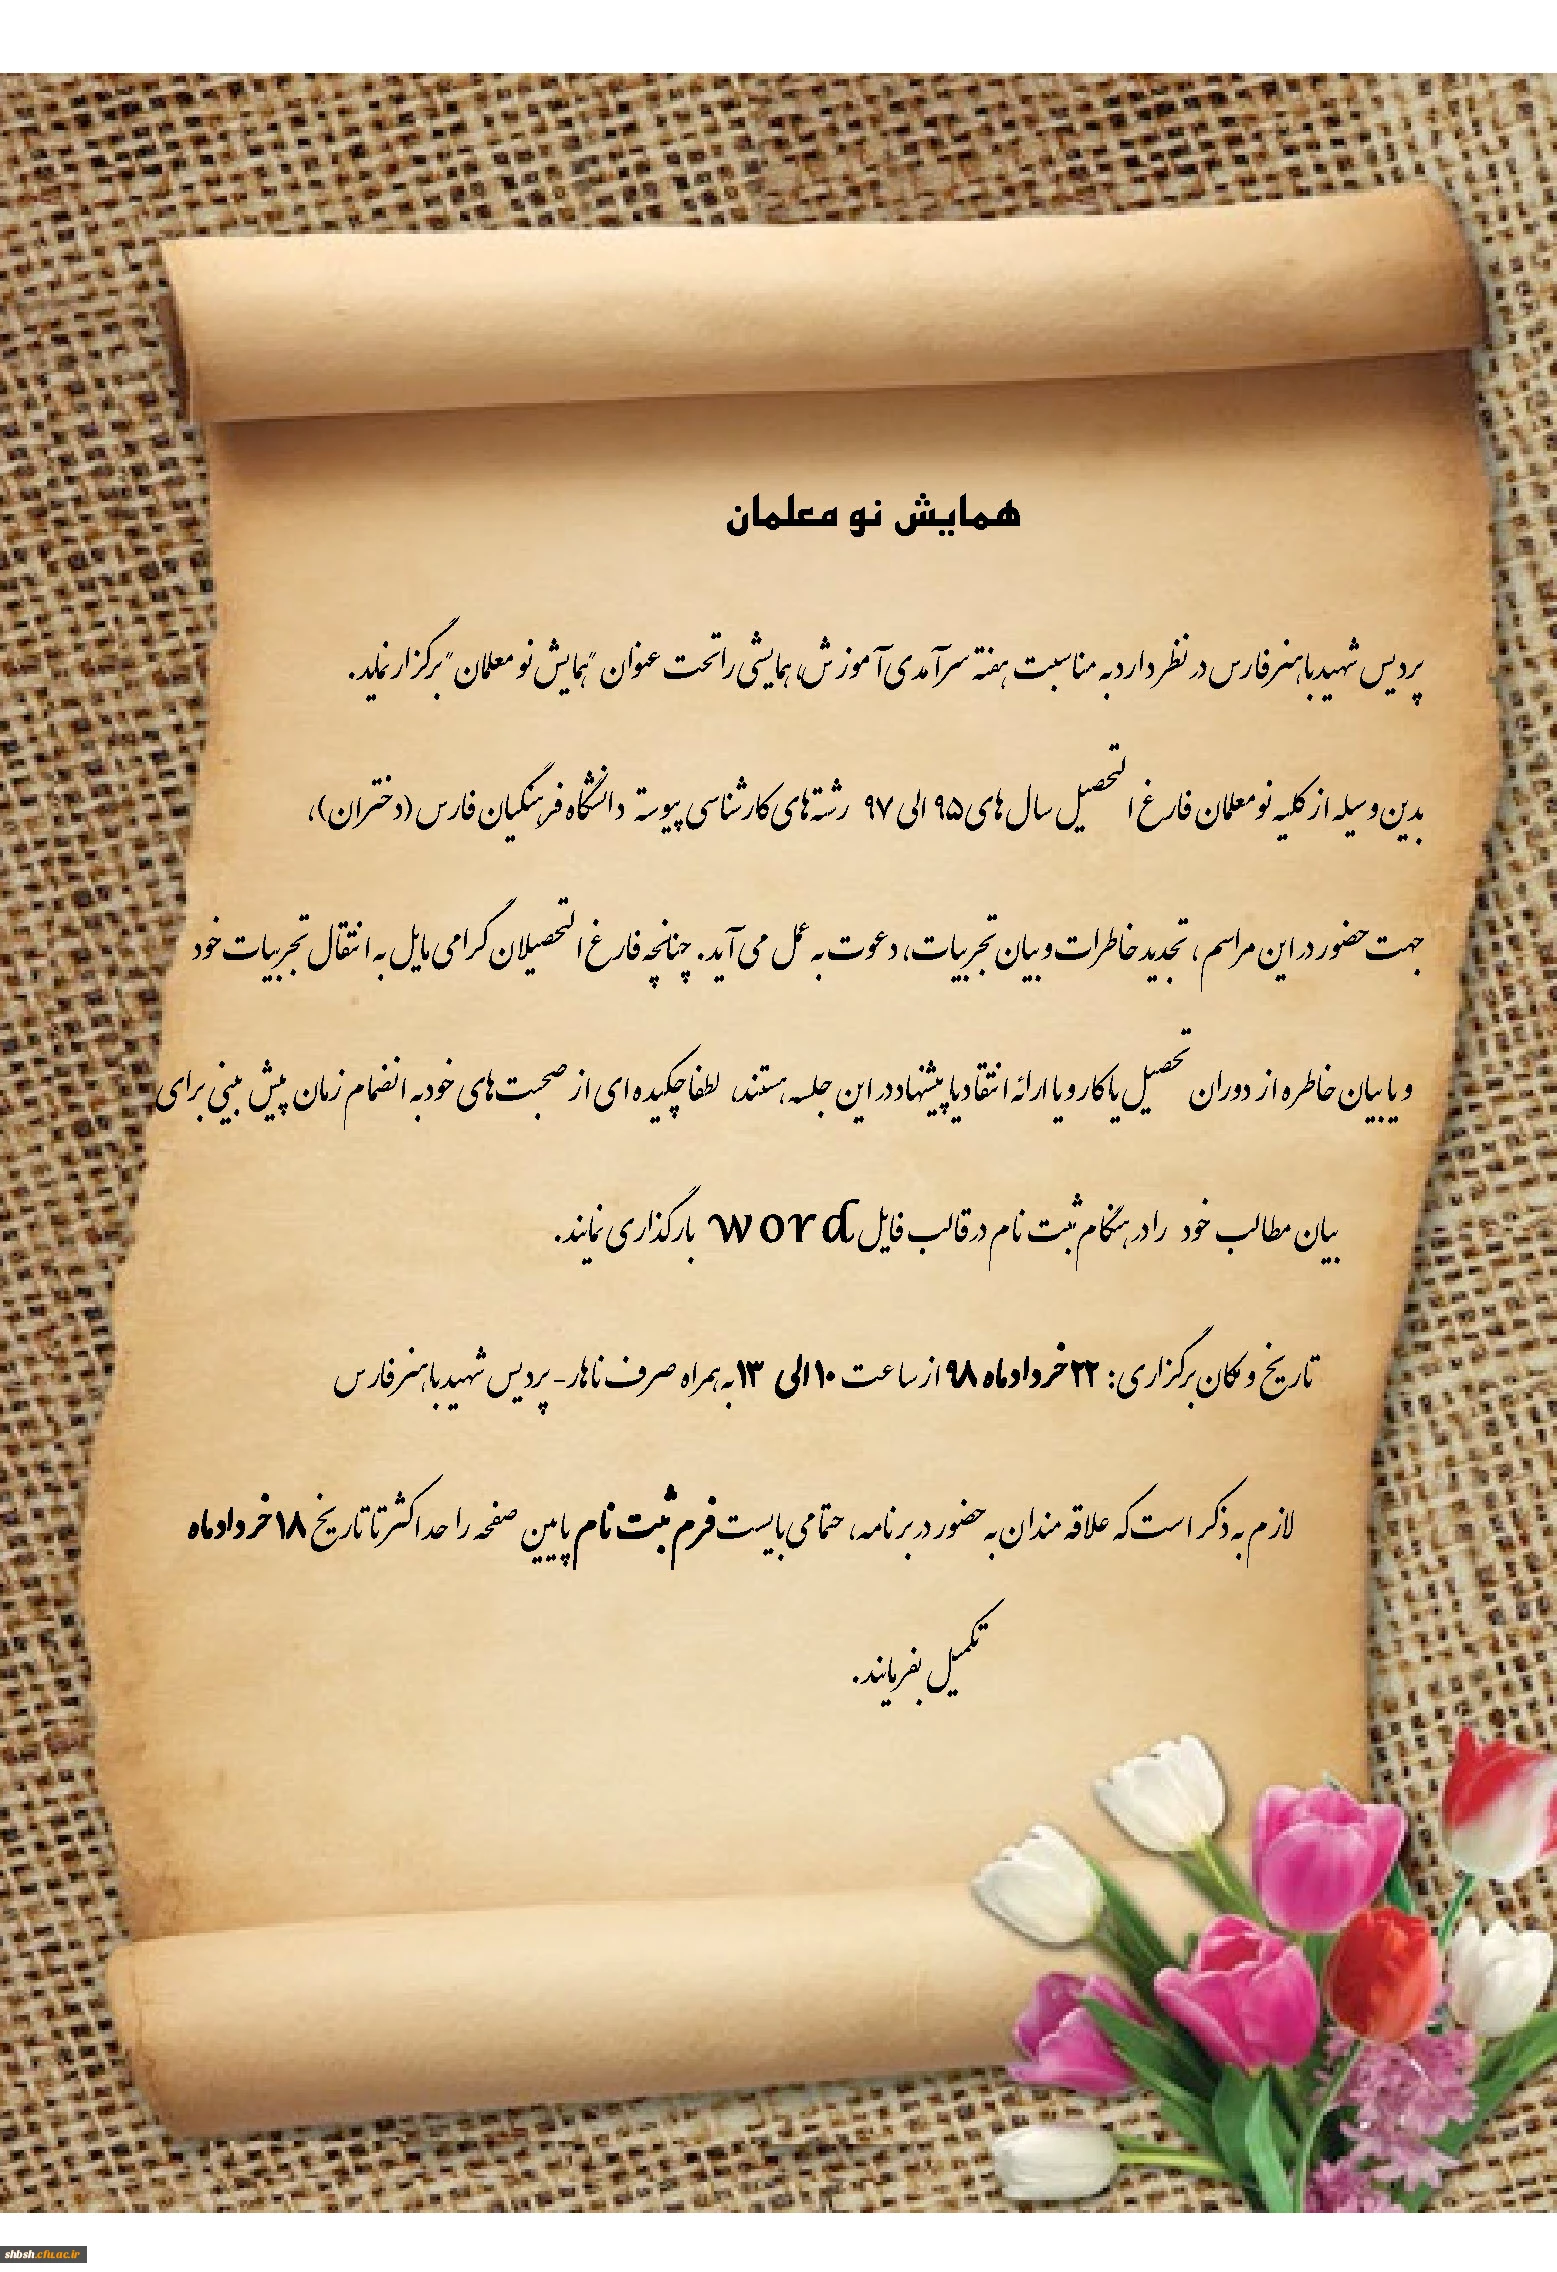 همایش نو معلمان
پردیس شهید باهنر فارس در نظر دارد به مناسبت هفته سرآمدی آموزش، همایشی را تحت عنوان "همایش نو معلمان" برگزار نماید.
بدین وسیله از کلیه نو معلمان فارغ التحصیل سال های ۹۵ الی ۹۷ رشته های کارشناسی پیوسته دانشگاه فرهنگیان فارس (دختران)،
جهت حضور در این مراسم، تجدید خاطرات و بیان تجربیات، دعوت به عمل می آید. چنانچه فارغ التحصیلان گرامی مایل به انتقال تجربیات خود
و یا بیان خاطره از دوران تحصیل یا کار و یا ارائه انتقاد یا پیشنهاد در این جلسه هستند، لطفا چکیده ای از صحبت های خود به انضمام زمان پیش بینی برای
بیان مطالب خود را در هنگام ثبت نام در قالب فایل word بارگذاری نمایند.
تاریخ و مکان برگزاری: ۲۲ خرداد ماه ۹۸ از ساعت ۱۰ الی ۱۳ به همراه صرف ناهار- پردیس شهید باهنر فارس
لازم به ذکر است که علاقه مندان به حضور در برنامه، حتما می بایست فرم ثبت نام پایین صفحه را حداکثر تا تاریخ ۱۸ خرداد ماه
تکمیل بفرمایند.
shbsh.cfu.ac.ir